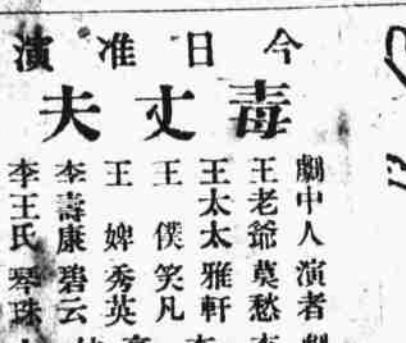 今日准演
毒丈夫
劇中人 演者
王老爺 莫愁
王太太 雅軒
王僕 笑凡
王婢 秀英
李壽康 碧云
李王氏 琴珠